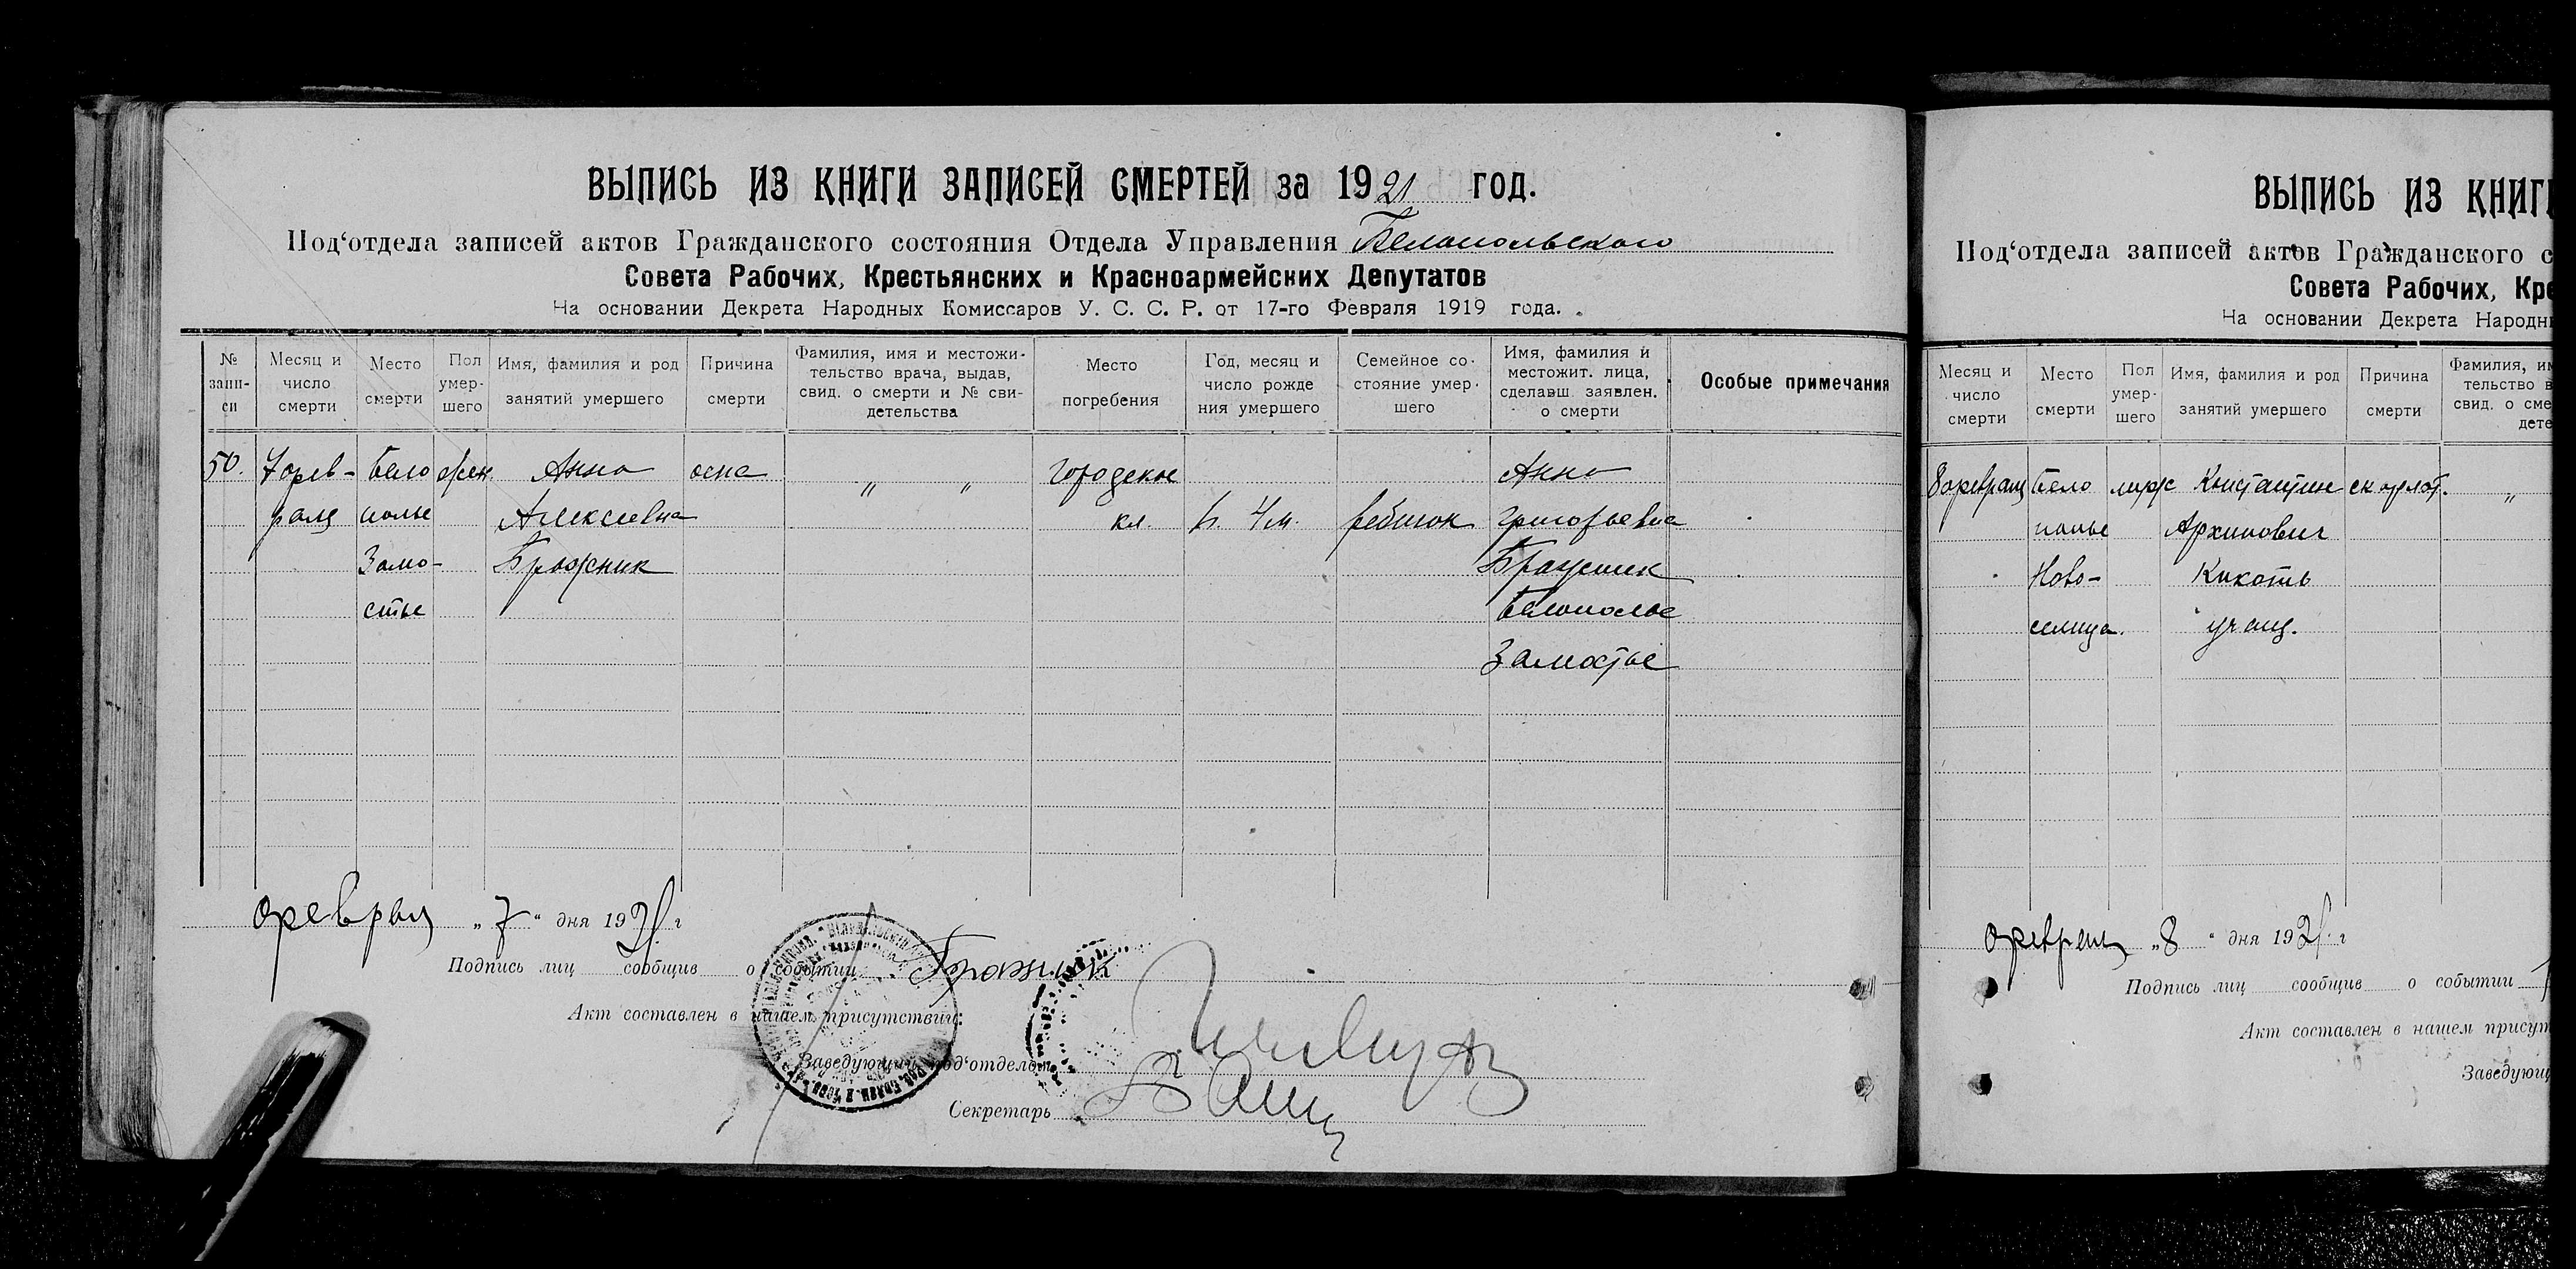 ВЫПИСЬ ИЗ КНИГИ ЗАПИСЕЙ СМЕРТЕЙ за 1921 год.
Под‘отдела записей актов Гражданского состояния Отдела Управления Белопольского
Совета Рабочих, Крестьянских и Красноармейских Депутатов
На основании Декрета Народных Комиссаров У. С. С. Р. от 17-го Февраля 1919 года.
№ запи-си
Месяц и число смерти
Место смерти
Пол умер-шего
Имя, фамилия и род занятий умершего
Причина смерти
Фамилия, имя и местожи-тельство врача, выдав, свид. о смерти и № сви-детельства
Место погребения
Год, месяц и число рожде ния умершего
Семейное со-стояние умер-шего
Имя, фамилия и местожит. лица, сделавш. заявлен. о смерти
Особые примечания
50. 7 фев- Бело жен. Анна оспа „ „ городское Анна
раля полье Алексеевна кл. 4 м. ребенок Григорьевна
Замо- Бражник Бражник
стье Белополье
Замостье
февраля „7“ дня 1921 г
Подпись лиц сообщив о событии Бражник
Акт составлен в нашем присутствии:
Заведующий под‘отделом
Секретарь
ВЫПИСЬ ИЗ КНИГИ
Под‘отдела записей актов Гражданского с
Совета Рабочих, Кре
На основании Декрета Народн
Месяц и число смерти
Место смерти
Пол умер-шего
Имя, фамилия и род занятий умершего
Причина смерти
Фамилия, им тельство в свид. о сме дете
8 февраля Бело муж Константин скарлат. „
полье Архипович
Ново- Кикоть
селица. учащ.
февраля „8“ дня 1921 г
Подпись лиц сообщив о событии
Акт составлен в нашем присут
Заведующ